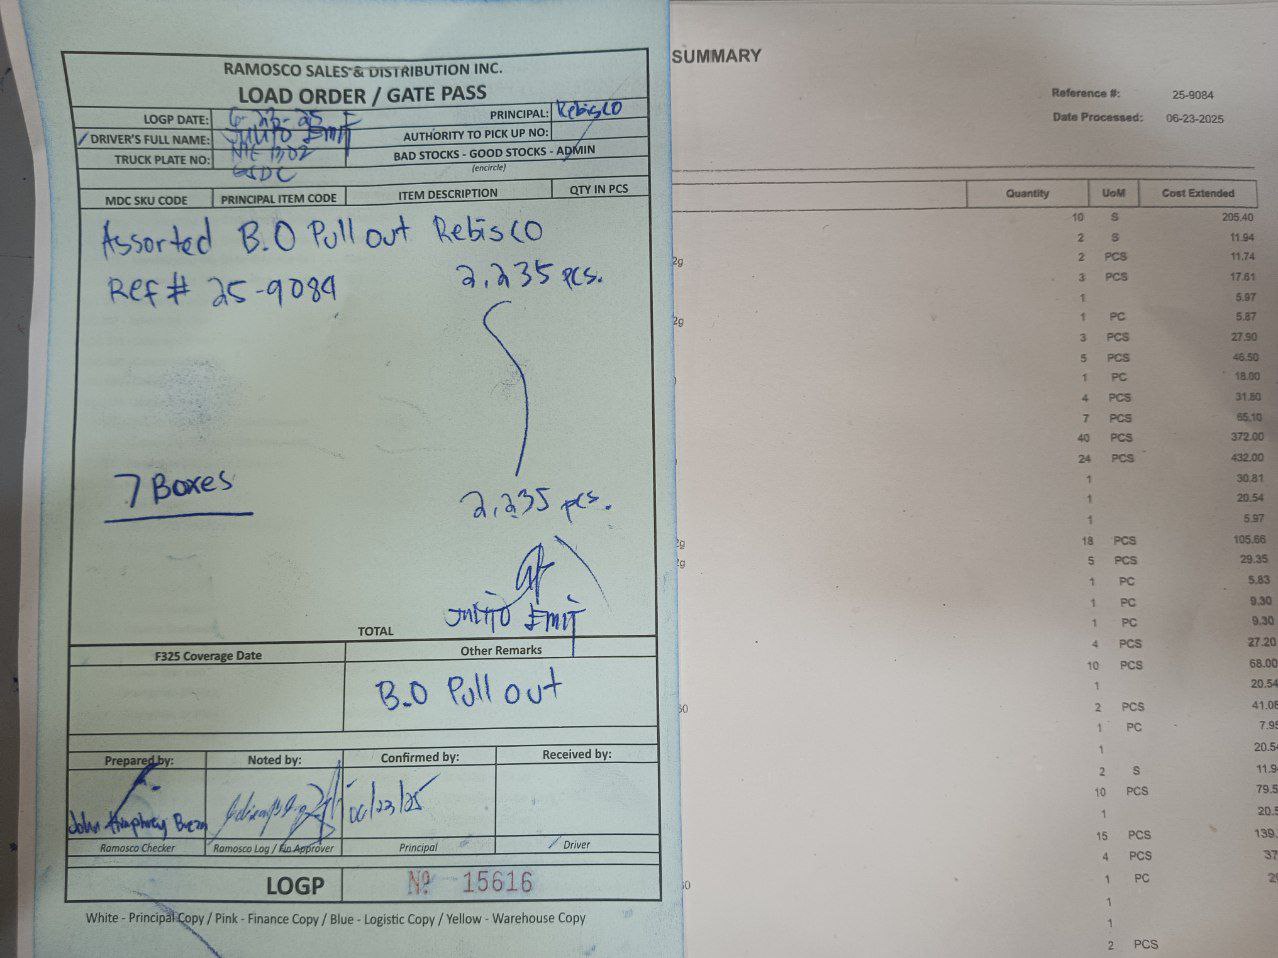 RAMOSCO SALES & DISTRIBUTION INC.
LOAD ORDER / GATE PASS
LOGP DATE: 6-23-25
PRINCIPAL: Rebisco
DRIVER'S FULL NAME:
AUTHORITY TO PICK UP NO:
TRUCK PLATE NO:
BAD STOCKS - GOOD STOCKS - ADMIN
(encircle)
MDC SKU CODE PRINCIPAL ITEM CODE ITEM DESCRIPTION QTY IN PCS
Assorted B.O Pull out Rebisco
Ref # 25-9084 2,235 pcs.
7 Boxes
2,235 pcs.
TOTAL
F325 Coverage Date Other Remarks
B.O Pull out
Prepared by: Noted by: Confirmed by: Received by:
John Humphrey
06/23/25
Ramosco Checker Ramosco Log / Fin Approver Principal Driver
LOGP Nº 15616
White - Principal Copy / Pink - Finance Copy / Blue - Logistic Copy / Yellow - Warehouse Copy
SUMMARY
Reference #: 25-9084
Date Processed: 06-23-2025
Quantity UoM Cost Extended
10 S 205.40
2 S 11.94
2g 2 PCS 11.74
3 PCS 17.61
1 5.97
2g 1 PC 5.87
3 PCS 27.90
5 PCS 46.50
1 PC 18.00
4 PCS 31.80
7 PCS 65.10
40 PCS 372.00
24 PCS 432.00
1 30.81
1 20.54
1 5.97
2g 18 PCS 105.66
2g 5 PCS 29.35
1 PC 5.83
1 PC 9.30
1 PC 9.30
4 PCS 27.20
10 PCS 68.00
1 20.54
2 PCS 41.08
1 PC 7.95
1 20.5
2 S 11.9
10 PCS 79.5
1 20.5
15 PCS 139.
4 PCS 37
1 PC
1
1
2 PCS